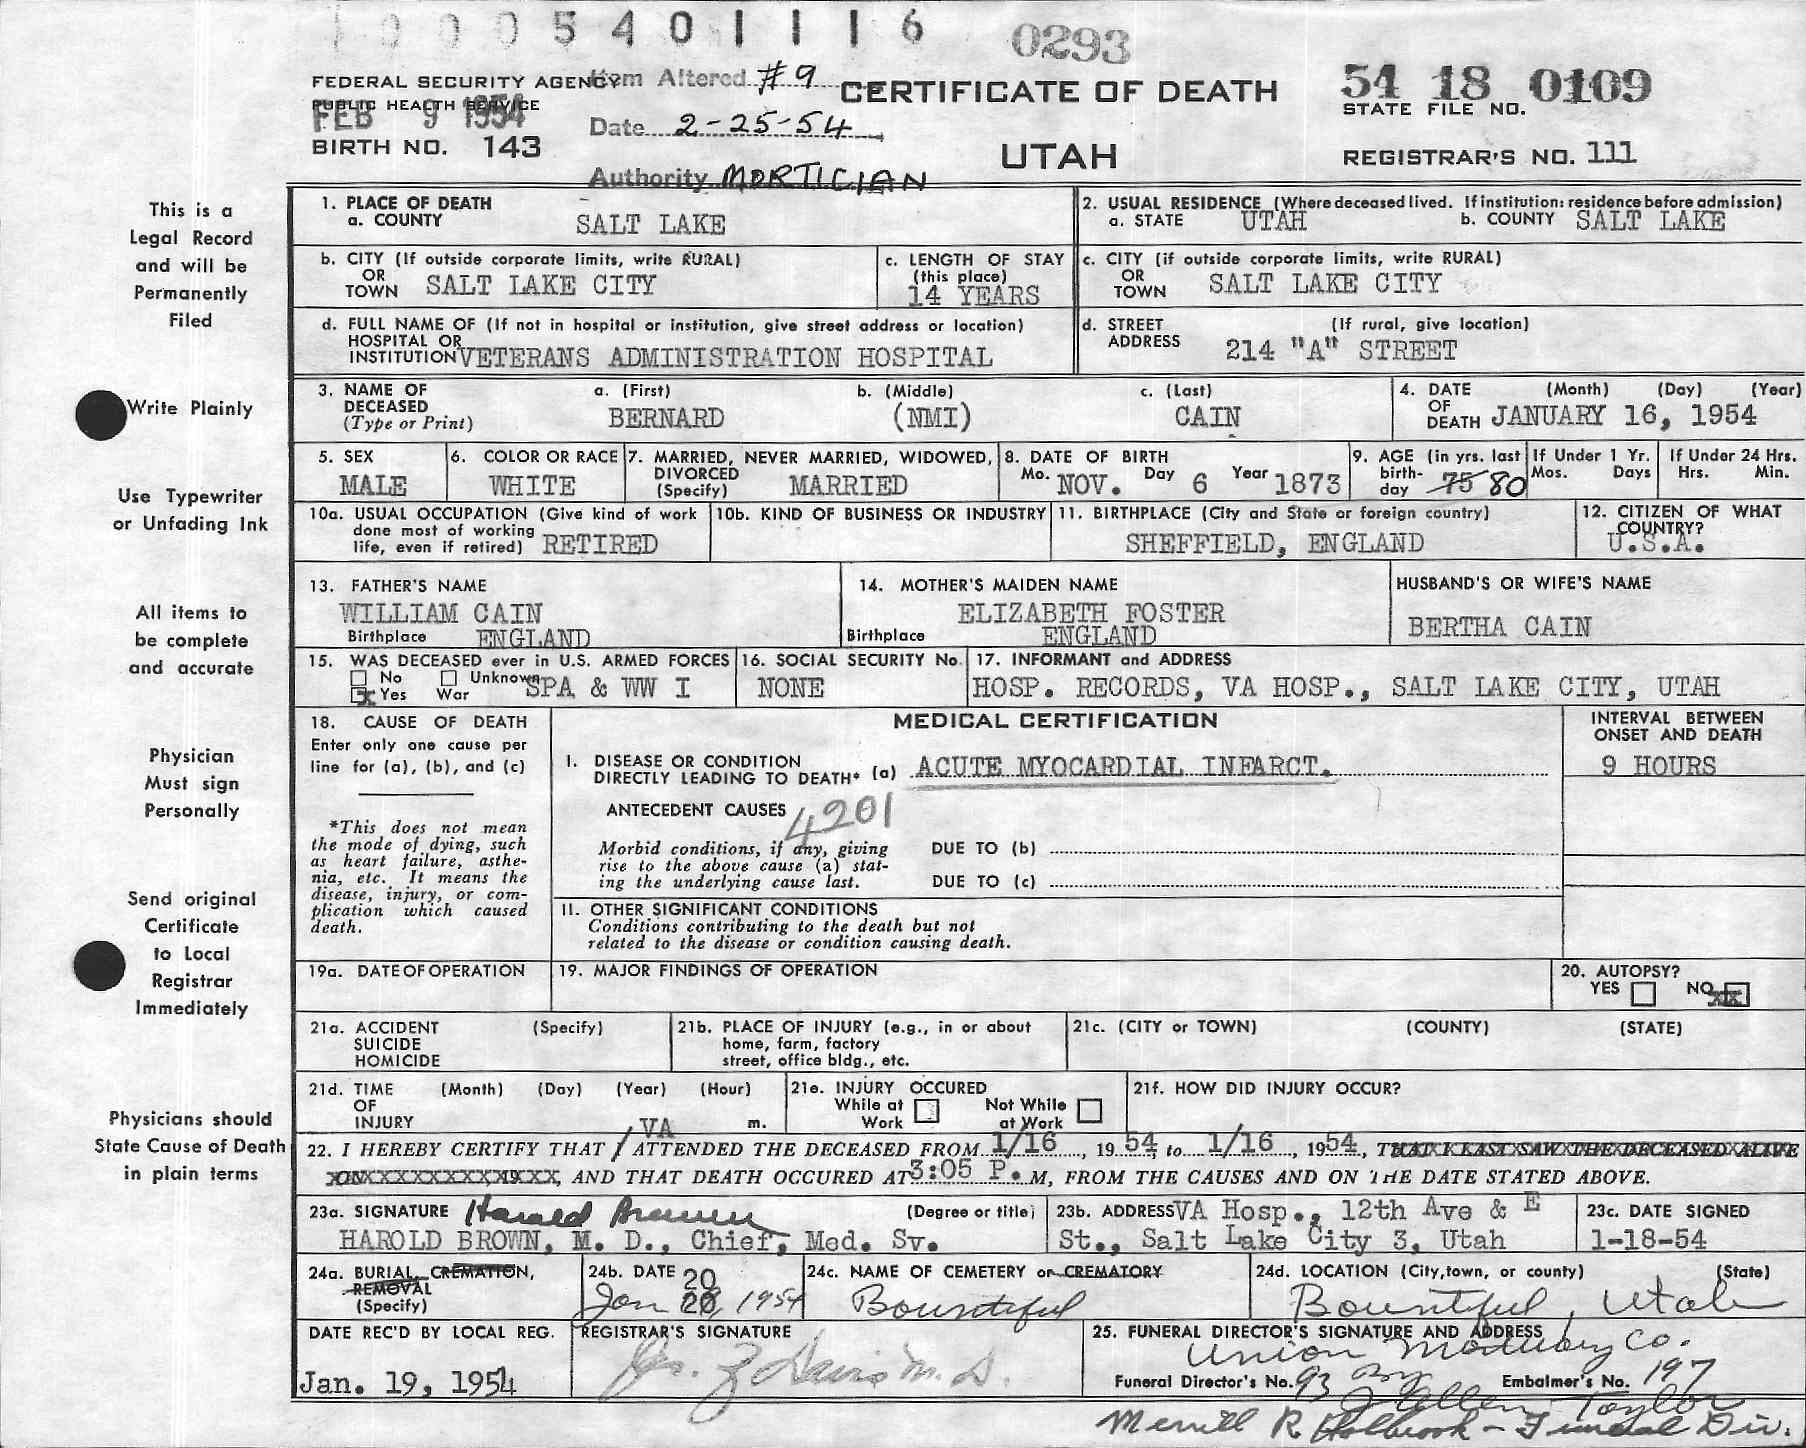 1 0 0 0 5 4 0 1 1 1 6
0293
FEDERAL SECURITY AGENCY
PUBLIC HEALTH SERVICE
FEB 9 1954
BIRTH NO. 143
Item Altered #9
Date 2-25-54
Authority MORTICIAN
CERTIFICATE OF DEATH
UTAH
54 18 0109
STATE FILE NO.
REGISTRAR'S NO. 111
This is a
Legal Record
and will be
Permanently
Filed
Write Plainly
Use Typewriter
or Unfading Ink
All items to
be complete
and accurate
Physician
Must sign
Personally
Send original
Certificate
to Local
Registrar
Immediately
Physicians should
State Cause of Death
in plain terms
1. PLACE OF DEATH
a. COUNTY SALT LAKE
2. USUAL RESIDENCE (Where deceased lived. If institution: residence before admission)
a. STATE UTAH b. COUNTY SALT LAKE
b. CITY (If outside corporate limits, write RURAL)
OR
TOWN SALT LAKE CITY
c. LENGTH OF STAY
(this place)
14 YEARS
c. CITY (if outside corporate limits, write RURAL)
OR
TOWN SALT LAKE CITY
d. FULL NAME OF (If not in hospital or institution, give street address or location)
HOSPITAL OR
INSTITUTION VETERANS ADMINISTRATION HOSPITAL
d. STREET (If rural, give location)
ADDRESS 214 "A" STREET
3. NAME OF a. (First) b. (Middle) c. (Last)
DECEASED BERNARD (NMI) CAIN
(Type or Print)
4. DATE (Month) (Day) (Year)
OF
DEATH JANUARY 16, 1954
5. SEX
MALE
6. COLOR OR RACE
WHITE
7. MARRIED, NEVER MARRIED, WIDOWED,
DIVORCED
(Specify) MARRIED
8. DATE OF BIRTH
Mo. NOV. Day 6 Year 1873
9. AGE (in yrs. last
birth-
day 75 80
If Under 1 Yr.
Mos. Days
If Under 24 Hrs.
Hrs. Min.
10a. USUAL OCCUPATION (Give kind of work
done most of working
life, even if retired) RETIRED
10b. KIND OF BUSINESS OR INDUSTRY
11. BIRTHPLACE (City and State or foreign country)
SHEFFIELD, ENGLAND
12. CITIZEN OF WHAT
COUNTRY?
U.S.A.
13. FATHER'S NAME
WILLIAM CAIN
Birthplace ENGLAND
14. MOTHER'S MAIDEN NAME
ELIZABETH FOSTER
Birthplace ENGLAND
HUSBAND'S OR WIFE'S NAME
BERTHA CAIN
15. WAS DECEASED ever in U.S. ARMED FORCES
No Unknown
x Yes War SPA & WW I
16. SOCIAL SECURITY No.
NONE
17. INFORMANT and ADDRESS
HOSP. RECORDS, VA HOSP., SALT LAKE CITY, UTAH
18. CAUSE OF DEATH
Enter only one cause per
line for (a), (b), and (c)
*This does not mean
the mode of dying, such
as heart failure, asthe-
nia, etc. It means the
disease, injury, or com-
plication which caused
death.
MEDICAL CERTIFICATION
I. DISEASE OR CONDITION
DIRECTLY LEADING TO DEATH* (a) ACUTE MYOCARDIAL INFARCT.
ANTECEDENT CAUSES
4201
Morbid conditions, if any, giving
rise to the above cause (a) stat-
ing the underlying cause last.
DUE TO (b)
DUE TO (c)
II. OTHER SIGNIFICANT CONDITIONS
Conditions contributing to the death but not
related to the disease or condition causing death.
INTERVAL BETWEEN
ONSET AND DEATH
9 HOURS
19a. DATE OF OPERATION
19. MAJOR FINDINGS OF OPERATION
20. AUTOPSY?
YES NO xx
21a. ACCIDENT (Specify)
SUICIDE
HOMICIDE
21b. PLACE OF INJURY (e.g., in or about
home, farm, factory
street, office bldg., etc.
21c. (CITY or TOWN) (COUNTY) (STATE)
21d. TIME (Month) (Day) (Year) (Hour)
OF
INJURY m.
21e. INJURY OCCURED
While at Not While
Work at Work
21f. HOW DID INJURY OCCUR?
VA
22. I HEREBY CERTIFY THAT / ATTENDED THE DECEASED FROM 1/16, 1954 to 1/16, 1954, THAT I LAST SAW THE DECEASED ALIVE
ON XXXXXXXXXX 19XX, AND THAT DEATH OCCURED AT 3:05 P. M, FROM THE CAUSES AND ON THE DATE STATED ABOVE.
23a. SIGNATURE Harold Brown (Degree or title)
HAROLD BROWN, M. D., Chief, Med. Sv.
23b. ADDRESS VA Hosp., 12th Ave & E
St., Salt Lake City 3, Utah
23c. DATE SIGNED
1-18-54
24a. BURIAL, CREMATION,
REMOVAL
(Specify)
24b. DATE 20
Jan 20, 1954
24c. NAME OF CEMETERY or CREMATORY
Bountiful
24d. LOCATION (City, town, or county) (State)
Bountiful, Utah
DATE REC'D BY LOCAL REG.
Jan. 19, 1954
REGISTRAR'S SIGNATURE
25. FUNERAL DIRECTOR'S SIGNATURE AND ADDRESS
Union Mortuary Co.
Funeral Director's No. 93 By Embalmer's No. 197
J Allen Taylor
Merrill R. Holbrook - Funeral Dir.